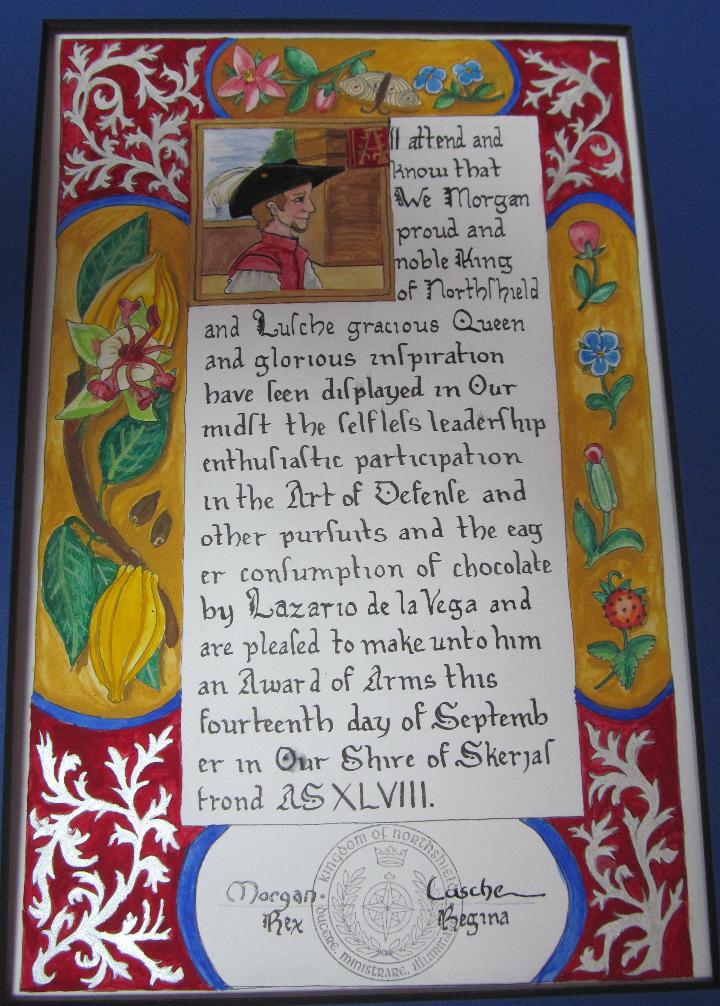 All attend and
know that
We Morgan
proud and
noble King
of Northſhield
and Luſche gracious Queen
and glorious inſpiration
have ſeen diſplayed in Our
midſt the ſelfleſs leaderſhip
enthuſiaſtic participation
in the Art of Defenſe and
other purſuits and the eag
er conſumption of chocolate
by Lazario de la Vega and
are pleaſed to make unto him
an Award of Arms this
fourteenth day of Septemb
er in Our Shire of Skerjaſ
trond AS XLVIII.
KINGDOM OF NORTHSHIELD
Morgan Lusche
Rex Regina
DUCERE, MINISTRARE,